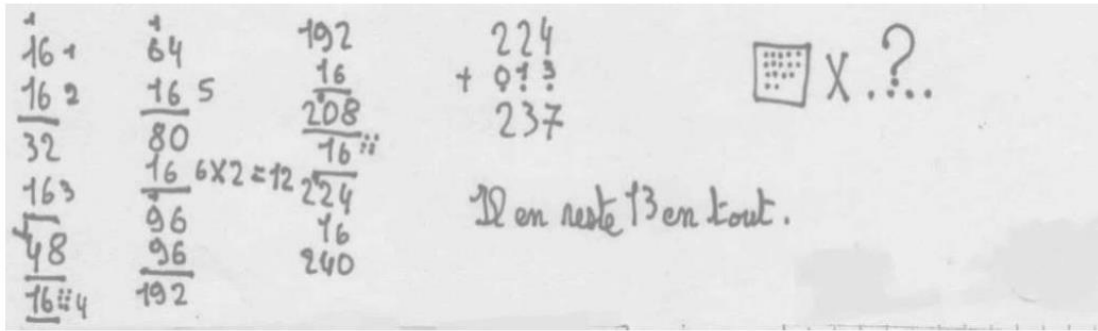 1
16 1
16 2
32
16 3
48
16 4
1
64
16 5
80
16 6X2=12
96
96
192
192
16
208
16
224
16
240
224
+ 013
237
X ?....
Il en reste 13 en tout.